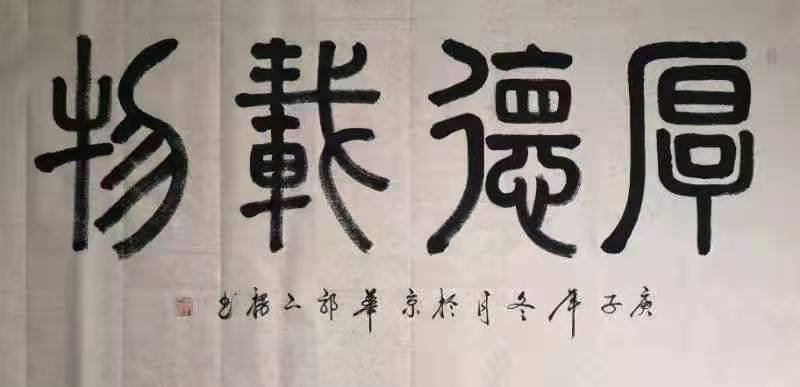 厚德載物
庚子年冬月於京華郭
书